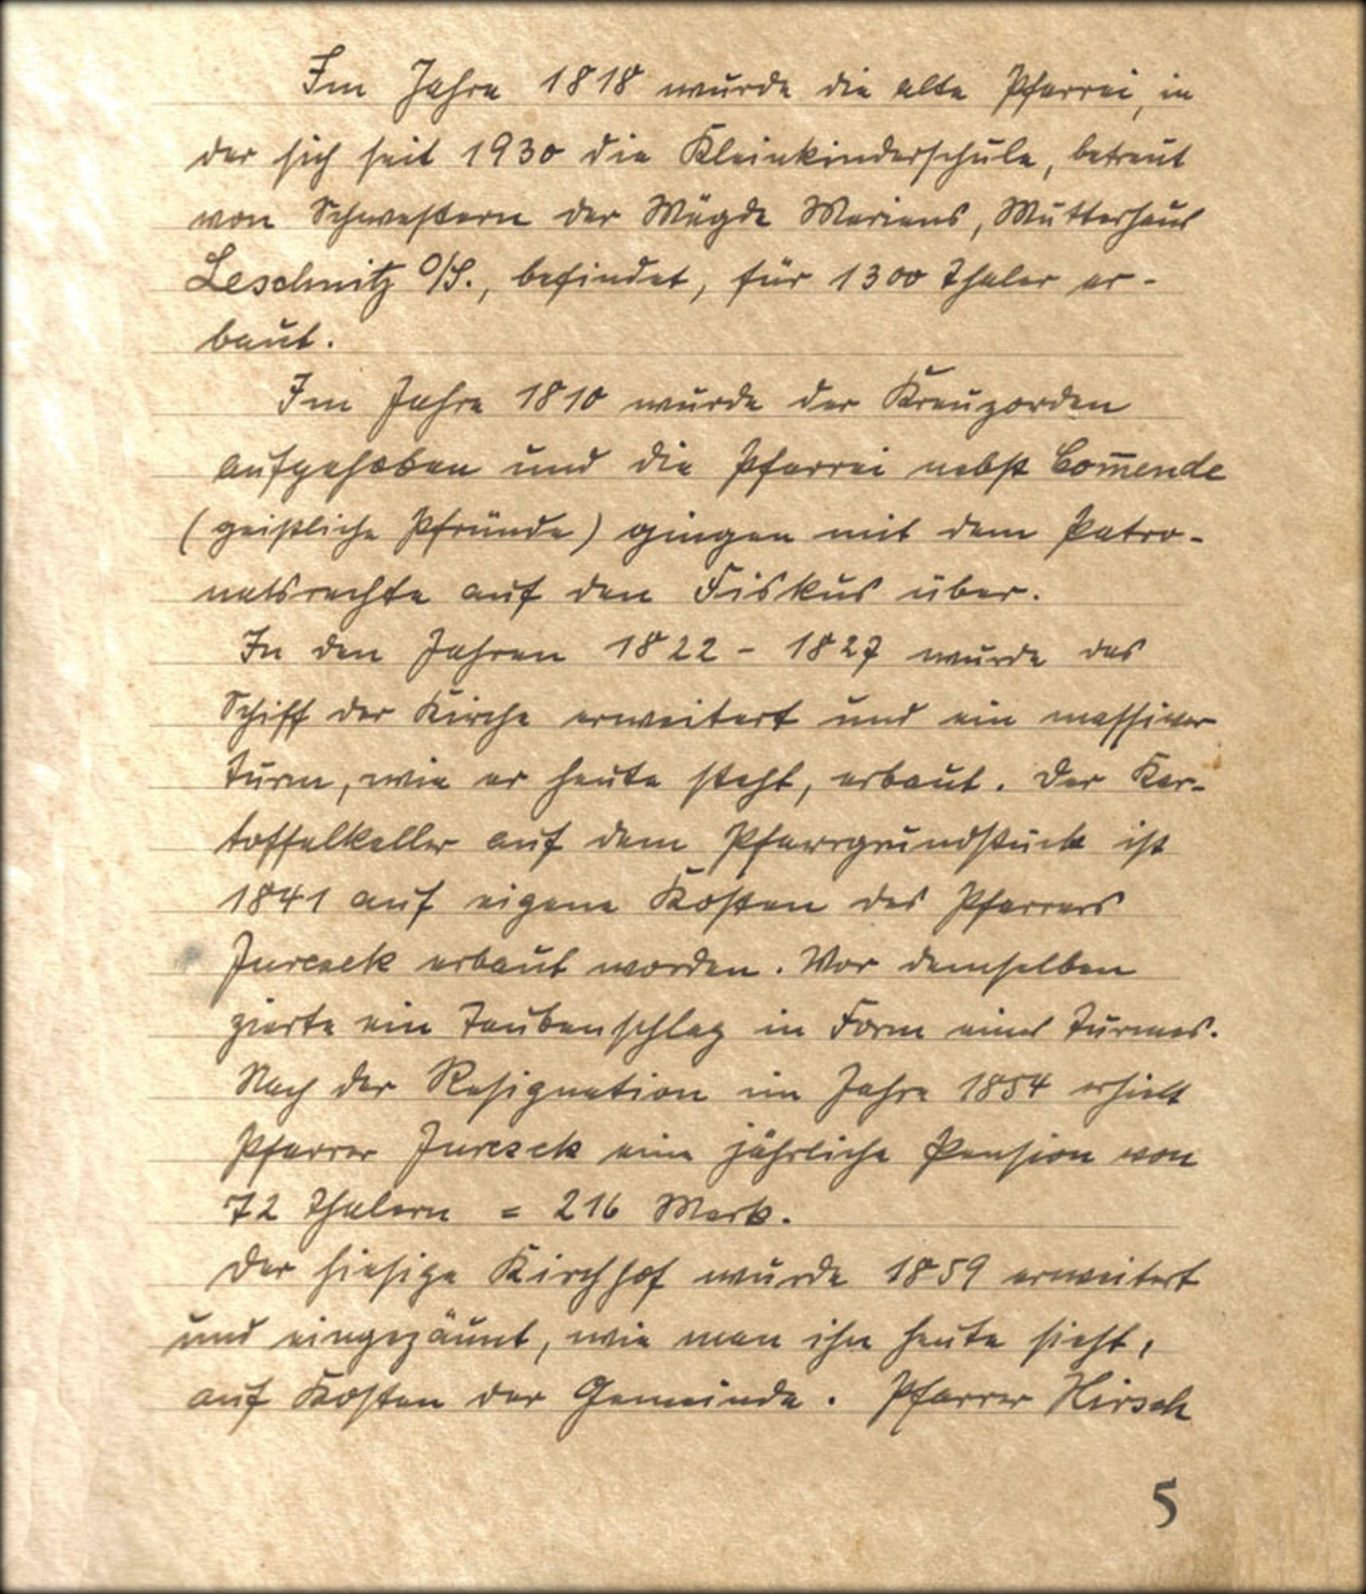 Im Jahre 1818 wurde die alte Pfarrei, in
der sich seit 1930 die Kleinkinderschule, betreut
von Schwestern der Mägde Mariens, Mutterhaus
Leschnitz O/S., befindet, für 1300 Thaler er-
baut.
Im Jahre 1810 wurde der Kreuzorden
aufgehoben und die Pfarrei nebst Com̅ende
(geistliche Pfründe) gingen mit dem Patro-
natsrechte auf den Fiskus über.
In den Jahren 1822 - 1827 wurde das
Schiff der Kirche erweitert und ein massiver
Turm, wie er heute steht, erbaut. Der Kar-
toffelkeller auf dem Pfarrgrundstück ist
1841 auf eigene Kosten des Pfarrers
Jurczek erbaut worden. Vor demselben
zierte ein Taubenschlag in Form eines Turmes.
Nach der Resignation im Jahre 1854 erhielt
Pfarrer Jurczek eine jährliche Pension von
72 Thalern = 216 Mark.
Der hiesige Kirchhof wurde 1859 erweitert
und eingezäunt, wie man ihn heute sieht,
auf Kosten der Gemeinde. Pfarrer Hirsch
5